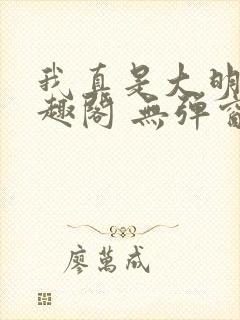 我真是大明
趣阁 無弹窗
廖萬成